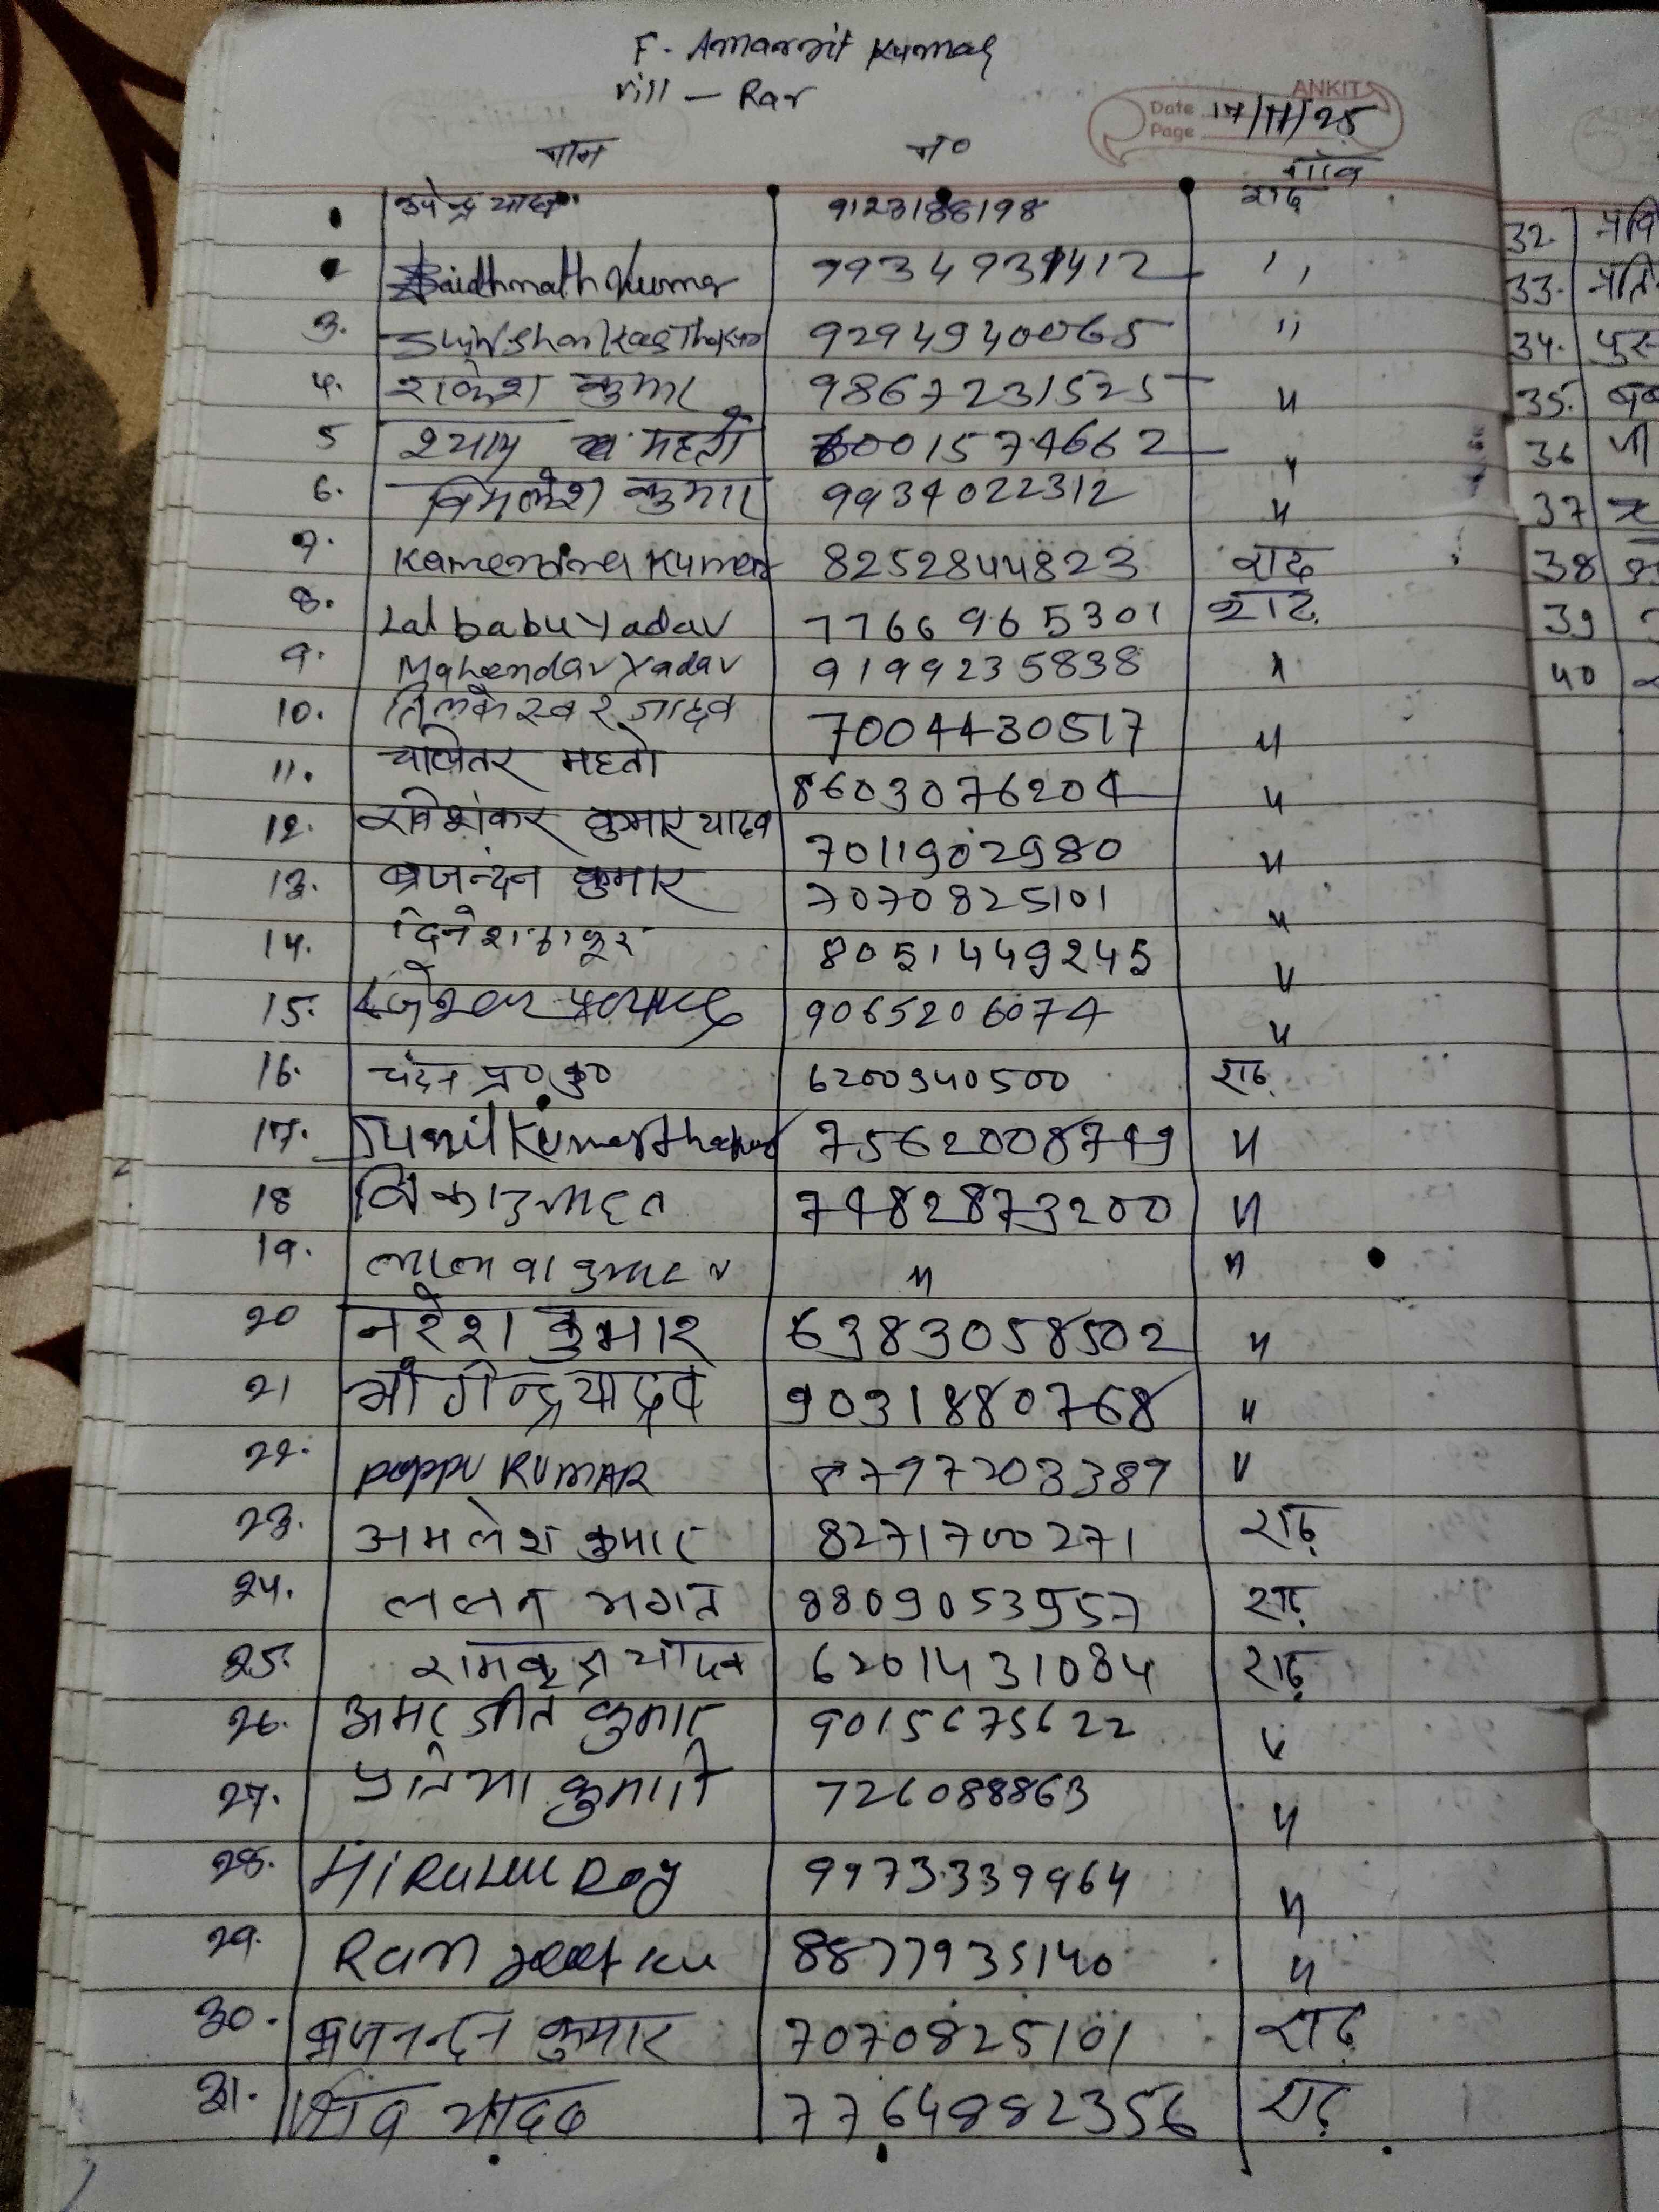 F. Amarjit Kumar
vill - Rar
ANKIT
Date 17/11/25
Page
नाम नं० गाँव
उपेन्द्र यादव 9123188198 राढ़
Baidhnath Kumar 9934939412 ,,
3. Shiv Shankar Thakur 9294940065 ,,
4. राकेश कुमार 9867231525 "
5 श्याम महतो 6001574662 "
6. विमलेश कुमार 9934022312 "
7. Kamendra Kumar 8252844823 राढ़
8. Lal babu Yadav 7766965301 राढ़
9. Mahendar Yadav 9199235838 "
10. तिलकेस्वर जादव 7004430517 "
11. चलितर महतो 8603076204 "
12. रविशंकर कुमार यादव 7011902980 "
13. ब्रजनंदन कुमार 7070825101 "
14. दिनेश ठाकुर 8051449245 "
15. 9065206074 "
16. चंदन प्र० कु० 6200940500 राढ़
17. Sunil Kumar Thakur 7562008749 "
18 7482873200 "
19. " "
20 नरेश कुमार 6383058502 "
21 योगेन्द्र यादव 9031880768 "
22. Pappu KUMAR 8797203389 "
23. अमलेश कुमार 8271700271 राढ़
24. ललन भगत 8809053957 राढ़
25. रामकृत यादव 6201431084 राढ़
26. अमरजीत कुमार 9015675622 "
27. प्रतिमा कुमारी 726088863 "
28. HiRaLaL Roy 9973339964 "
29. Ranjeet Ku 8877935140 "
30. ब्रजनन्दन कुमार 7070825101 राढ़
31. शिव यादव 7764882356 राढ़
32.
33.
34.
35.
36
37
38
39
40